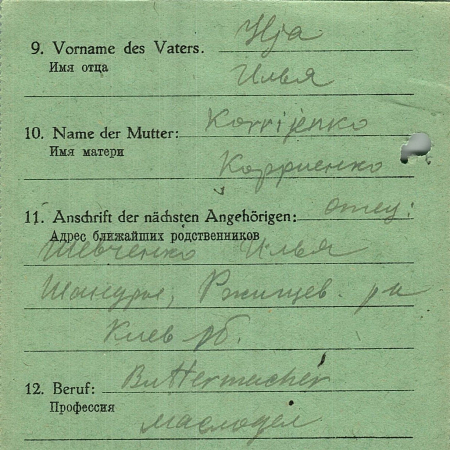 9. Vorname des Vaters. Ilja
Имя отца
Илья
10. Name der Mutter: Korrijenko
Имя матери
Корриенко
11. Anschrift der nächsten Angehörigen: отец:
Адрес ближайших родственников
Шевченко Илья
р-н
Киев об.
12. Beruf: Buttermacher
Профессия
маслодел